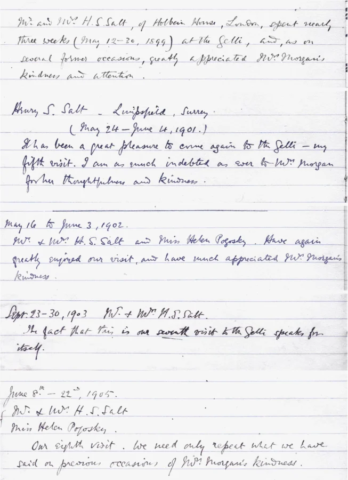 Mr. and Mrs. H. S. Salt, of Holbein House, London, spent nearly
three weeks (May 12-30, 1899) at the Gelli, and, as on
several former occasions, greatly appreciated Mrs. Morgan's
kindness and attention.
Henry S. Salt - Limpsfield, Surrey
(May 24 - June 4, 1901.)
It has been a great pleasure to come again to the Gelli - my
fifth visit. I am as much indebted as ever to Mrs. Morgan
for her thoughtfulness and kindness.
May 16 to June 3, 1902.
Mr. & Mrs. H. S. Salt and Miss Helen Pogosky. Have again
greatly enjoyed our visit, and have much appreciated Mrs. Morgan's
kindness.
Sept. 23-30, 1903 Mr. & Mrs. H. S. Salt.
The fact that this is our seventh visit to the Gelli speaks for
itself.
June 8th - 22nd, 1905.
Mr. & Mrs. H. S. Salt
Miss Helen Pogosky.
Our eighth visit. We need only repeat what we have
said on previous occasions of Mrs. Morgan's kindness.